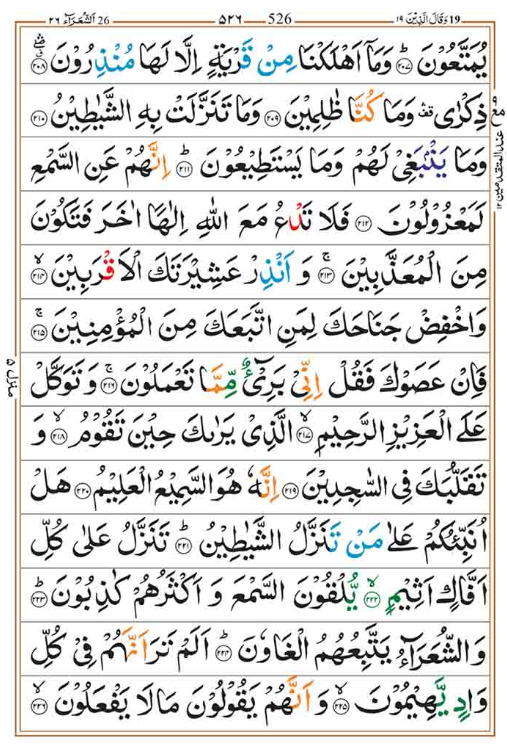 19 وَقَالَ الَّذِيْنَ ١٩ 526 ٥٢٦ 26 اَلشُّعَرَآء ٢٦
يُمَتَّعُوْنَ ؕ‏﴿۲۰۷﴾ وَمَاۤ اَهْلَكْنَا مِنْ قَرْيَةٍ اِلَّا لَهَا مُنْذِرُوْنَ ﴿۲۰۸﴾
ذِكْرٰى ۛ وَمَا كُنَّا ظٰلِمِيْنَ ﴿۲۰۹﴾ وَمَا تَنَزَّلَتْ بِهِ الشَّيٰطِيْنُ ﴿۲۱۰﴾
وَمَا يَنْۢبَغِىْ لَهُمْ وَمَا يَسْتَطِيْعُوْنَ ؕ‏﴿۲۱۱﴾ اِنَّهُمْ عَنِ السَّمْعِ
لَمَعْزُوْلُوْنَ ؕ‏﴿۲۱۲﴾ فَلَا تَدْعُ مَعَ اللّٰهِ اِلٰهًا اٰخَرَ فَتَكُوْنَ
مِنَ الْمُعَذَّبِيْنَ ۚ‏﴿۲۱۳﴾ وَاَنْذِرْ عَشِيْرَتَكَ الْاَقْرَبِيْنَ ۙ‏﴿۲۱۴﴾
وَاخْفِضْ جَنَاحَكَ لِمَنِ اتَّبَعَكَ مِنَ الْمُؤْمِنِيْنَ ۚ‏﴿۲۱۵﴾
فَاِنْ عَصَوْكَ فَقُلْ اِنِّىْ بَرِىْٓءٌ مِّمَّا تَعْمَلُوْنَ ۚ‏﴿۲۱۶﴾ وَتَوَكَّلْ
عَلَى الْعَزِيْزِ الرَّحِيْمِ ۙ‏﴿۲۱۷﴾ الَّذِىْ يَرٰىكَ حِيْنَ تَقُوْمُ ۙ‏﴿۲۱۸﴾ وَ
تَقَلُّبَكَ فِى السّٰجِدِيْنَ ﴿۲۱۹﴾ اِنَّهٗ هُوَ السَّمِيْعُ الْعَلِيْمُ ﴿۲۲۰﴾ هَلْ
اُنَبِّئُكُمْ عَلٰى مَنْ تَنَزَّلُ الشَّيٰطِيْنُ ؕ‏﴿۲۲۱﴾ تَنَزَّلُ عَلٰى كُلِّ
اَفَّاكٍ اَثِيْمٍ ۙ‏﴿۲۲۲﴾ يُّلْقُوْنَ السَّمْعَ وَاَكْثَرُهُمْ كٰذِبُوْنَ ؕ‏﴿۲۲۳﴾
وَالشُّعَرَآءُ يَتَّبِعُهُمُ الْغَاوٗنَ ؕ‏﴿۲۲۴﴾ اَلَمْ تَرَ اَنَّهُمْ فِىْ كُلِّ
وَادٍ يَّهِيْمُوْنَ ۙ‏﴿۲۲۵﴾ وَاَنَّهُمْ يَقُوْلُوْنَ مَا لَا يَفْعَلُوْنَ ۙ‏﴿۲۲۶﴾
منزل ٥